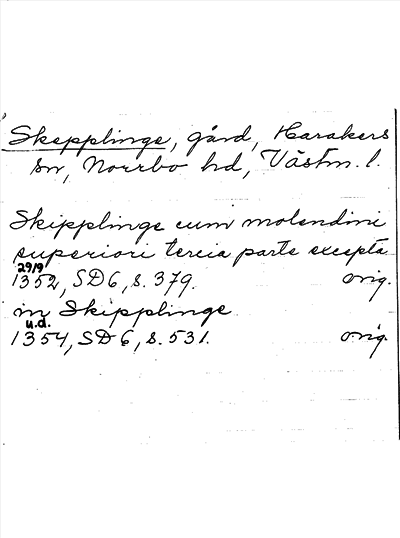 Skepplinge, gård, Harakers
sn, Norrbo hd, Västm. l.
Skipplinge cum molendini
superiori tercia parte excepta
29/9
1352, SD 6, s. 379. orig.
in Skipplinge
u.d.
1354, SD 6, s. 531. orig.